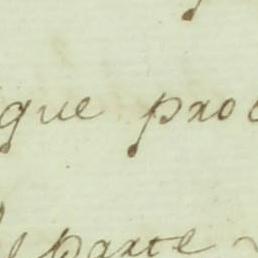 que proc
parte